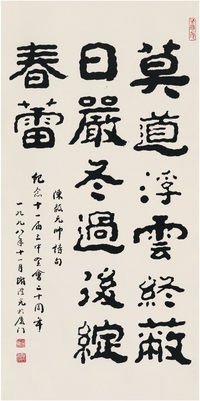 莫道浮雲終蔽
日嚴冬過後綻
春蕾
陳毅元帥詩句
紀念十一届三中全會二十周年
一九九八年十一月
於厦门